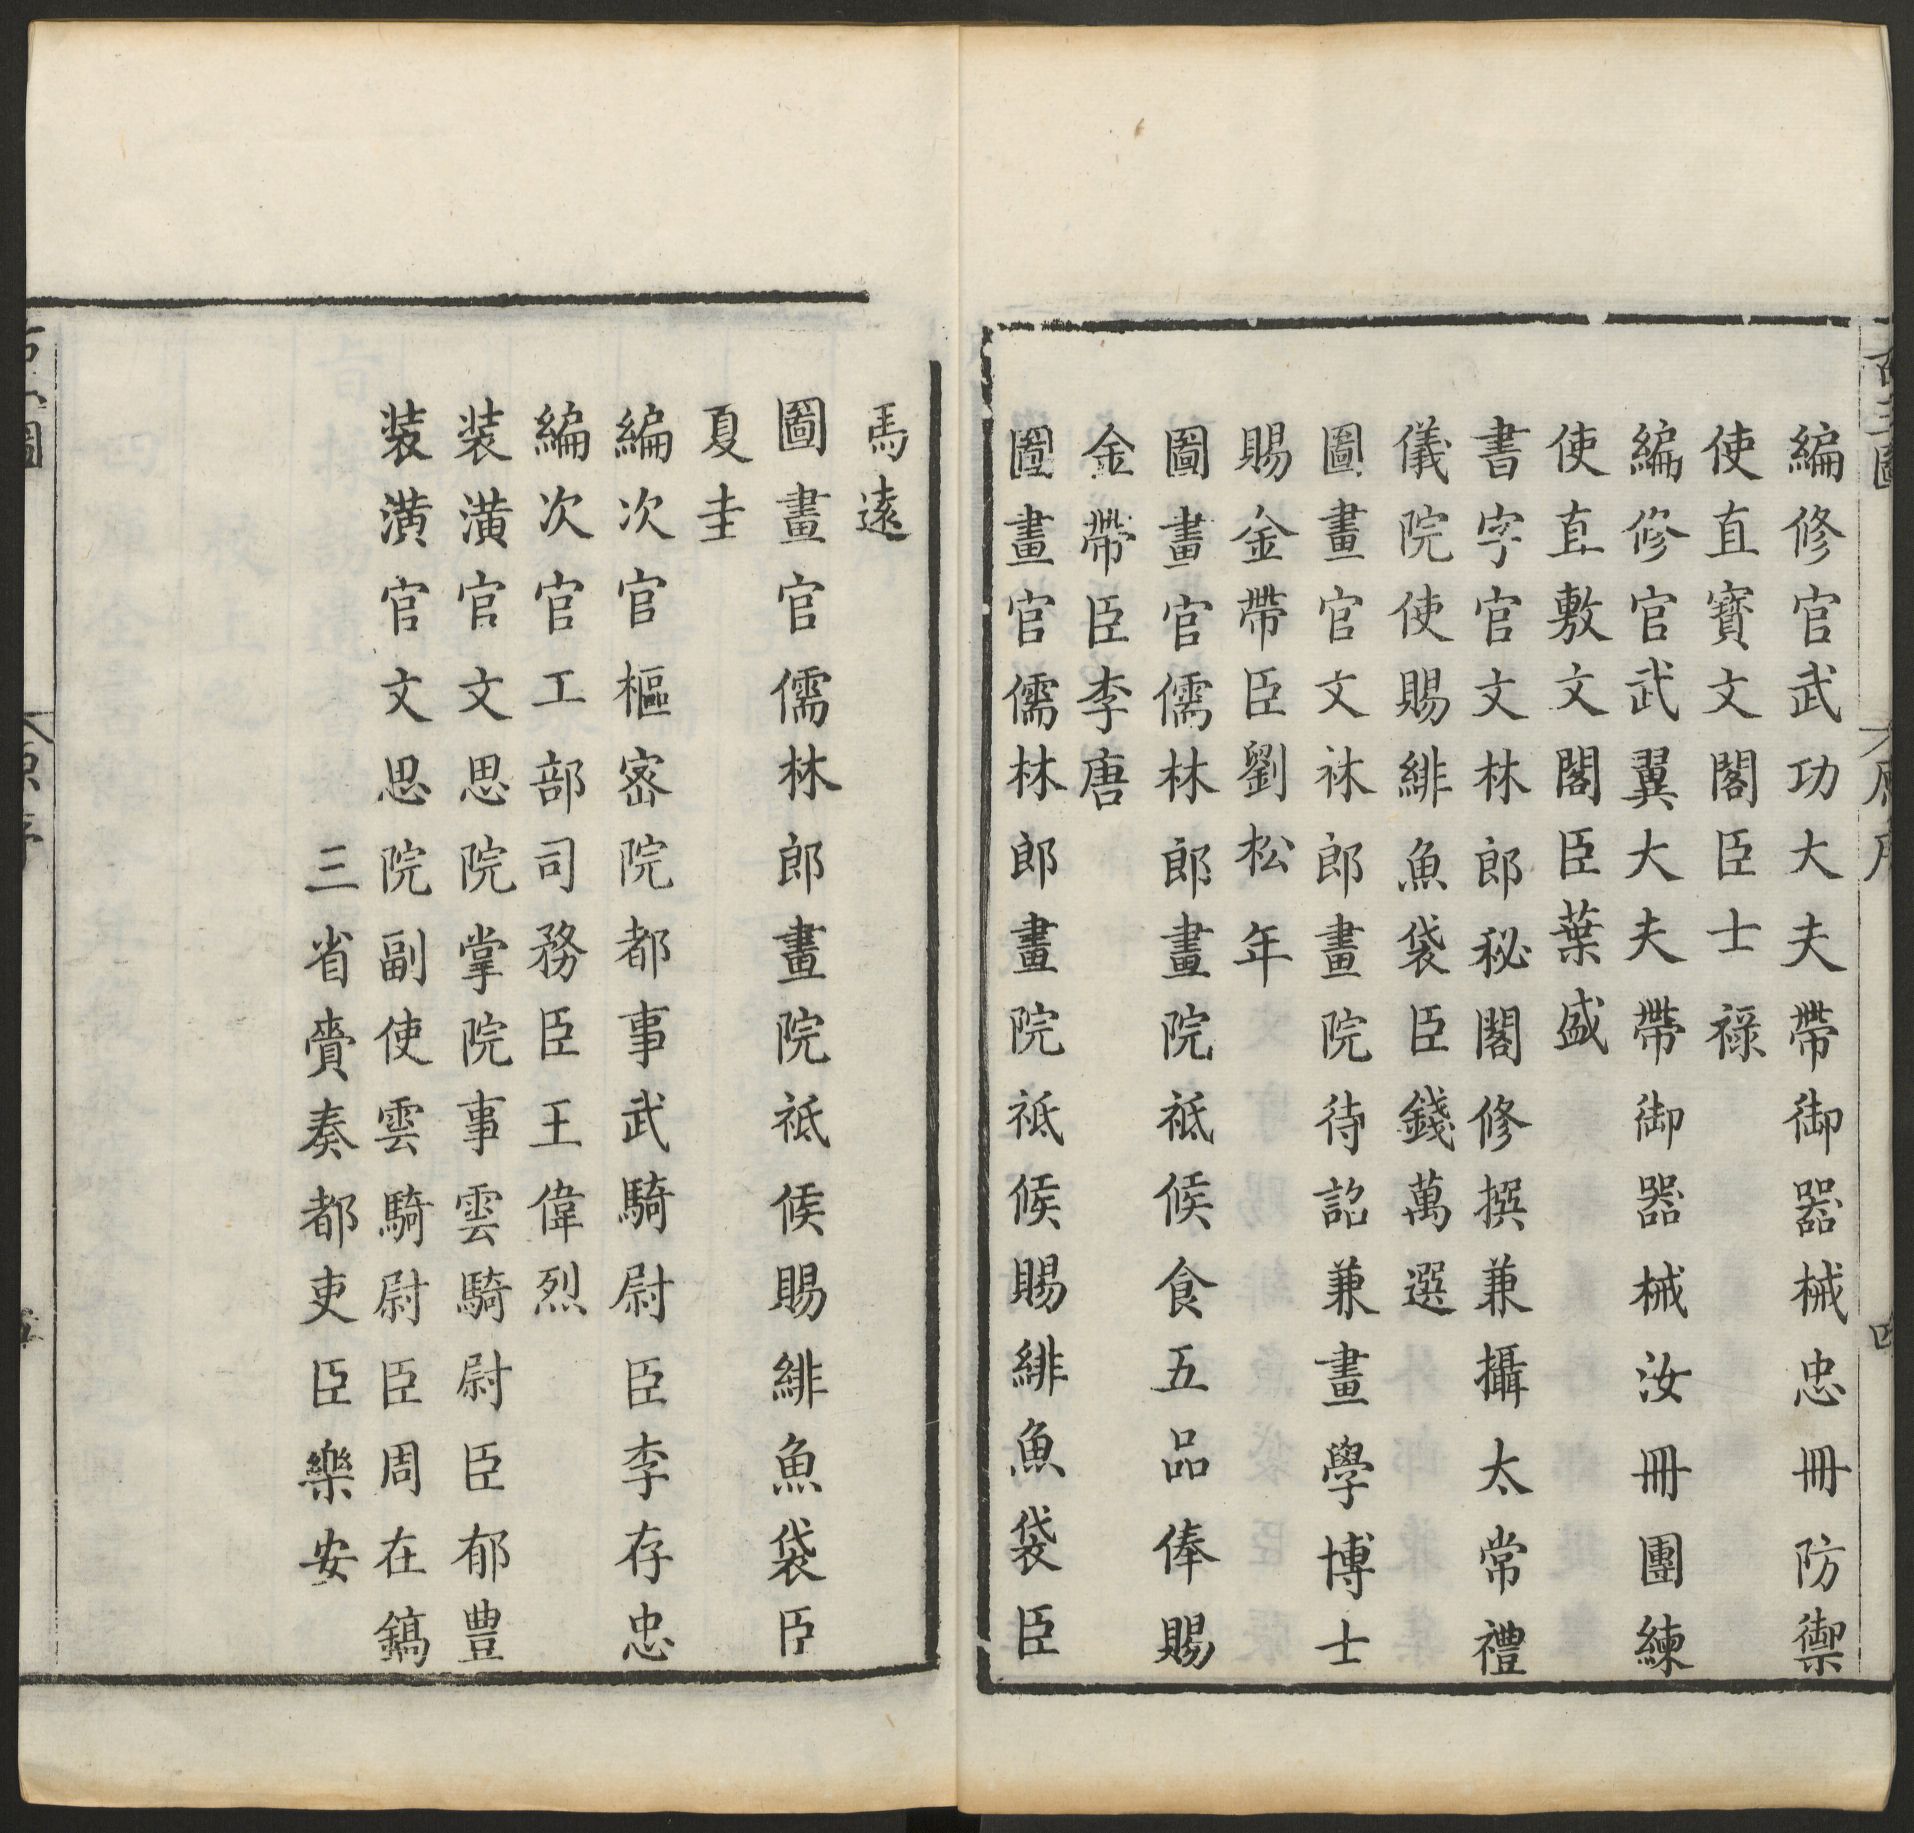 編修官武功大夫帶御器械忠冊防禦
使直寶文閣臣士祿
編修官武翼大夫帶御器械汝冊團練
使直敷文閣臣葉盛
書字官文林郎秘閣修撰兼攝太常禮
儀院使賜緋魚袋臣錢萬選
圖畫官文林郎畫院待詔兼畫學博士
賜金帶臣劉松年
圖畫官儒林郎畫院祗候食五品俸賜
金帶臣李唐
圖畫官儒林郎畫院祗候賜緋魚袋臣
馬遠
圖畫官儒林郎畫院祗候賜緋魚袋臣
夏圭
編次官樞密院都事武騎尉臣李存忠
編次官工部司務臣王偉烈
裝潢官文思院掌院事雲騎尉臣郁豊
裝潢官文思院副使雲騎尉臣周在鎬
三省賫奏都吏臣樂安